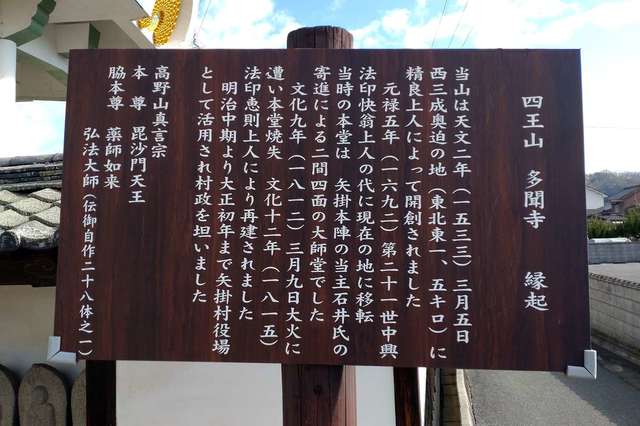 四王山　多聞寺　縁起
当山は天文二年（一五三三）三月五日
西三成奥迫の地（東北東一、五キロ）に
精良上人によって開創されました
元禄五年（一六九二）第二十一世中興
法印快翁上人の代に現在の地に移転
当時の本堂は　矢掛本陣の当主石井氏の
寄進による二間四面の大師堂でした
文化九年（一八一二）三月九日大火に
遭い本堂焼失　文化十二年（一八一五）
法印恵則上人により再建されました
明治中期より大正初年まで矢掛村役場
として活用され村政を担いました
高野山真言宗
本　尊　毘沙門天王
脇本尊　薬師如来
弘法大師（伝御自作二十八体之一）